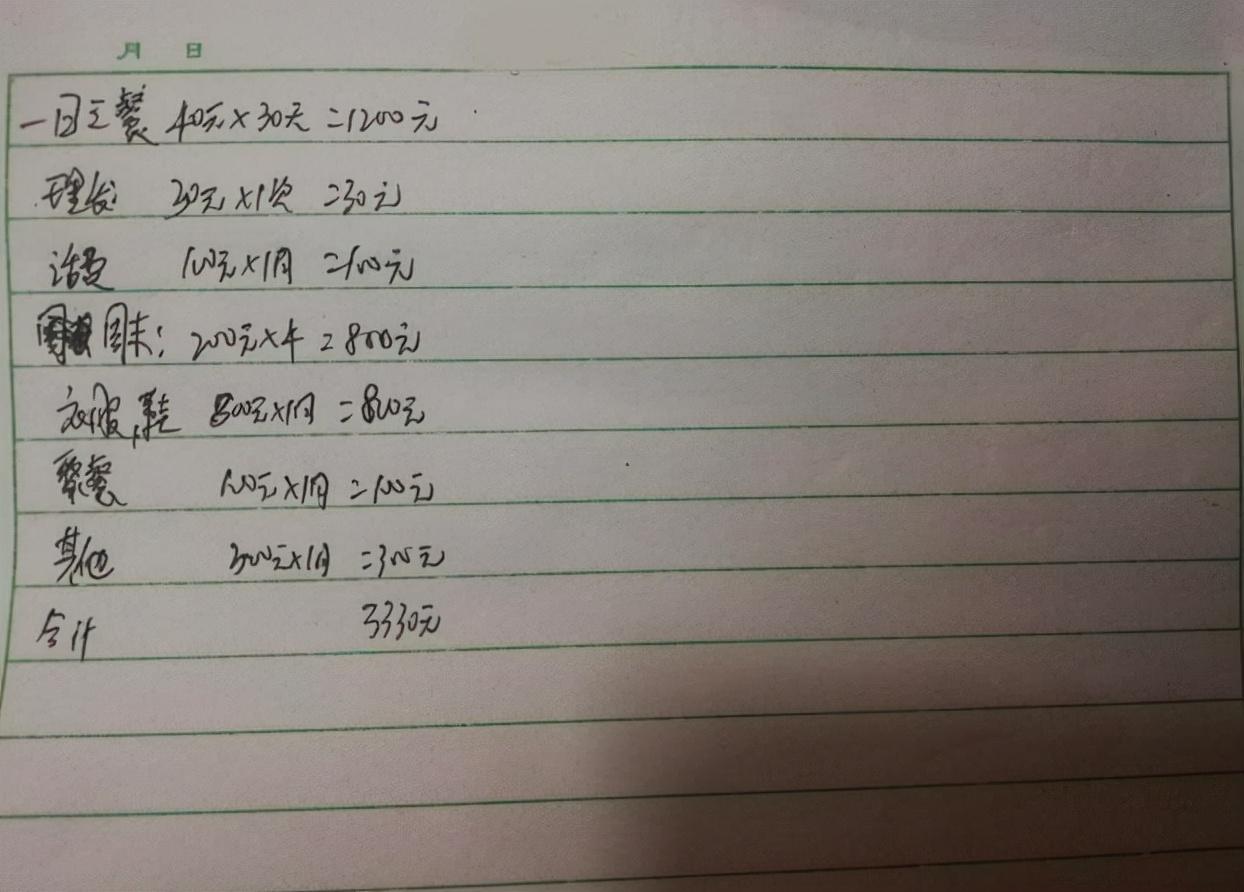 月 日
一日三餐 40元×30天=1200元
理发 30元×1次=30元
话费 100元×1月=100元
周末: 200元×4=800元
衣服,鞋 800元×1月=800元
聚餐 100元×1月=100元
其他 300元×1月=300元
合计 3330元